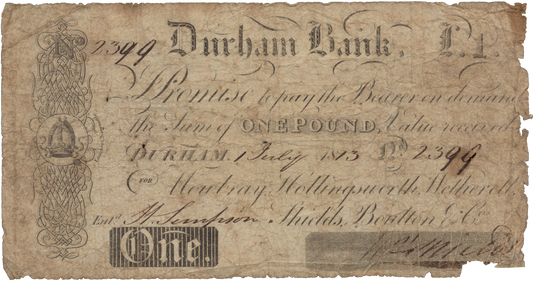 No 2399 Durham Bank. £.1.
I Promise to pay the Bearer on demand
the Sum of ONE POUND, Value received
DURHAM, 1 July 1813 No 2399
FOR Mowbray Hollingsworth, Wetherell
Entd. H. Simpson Shields, Boulton & Co
One.